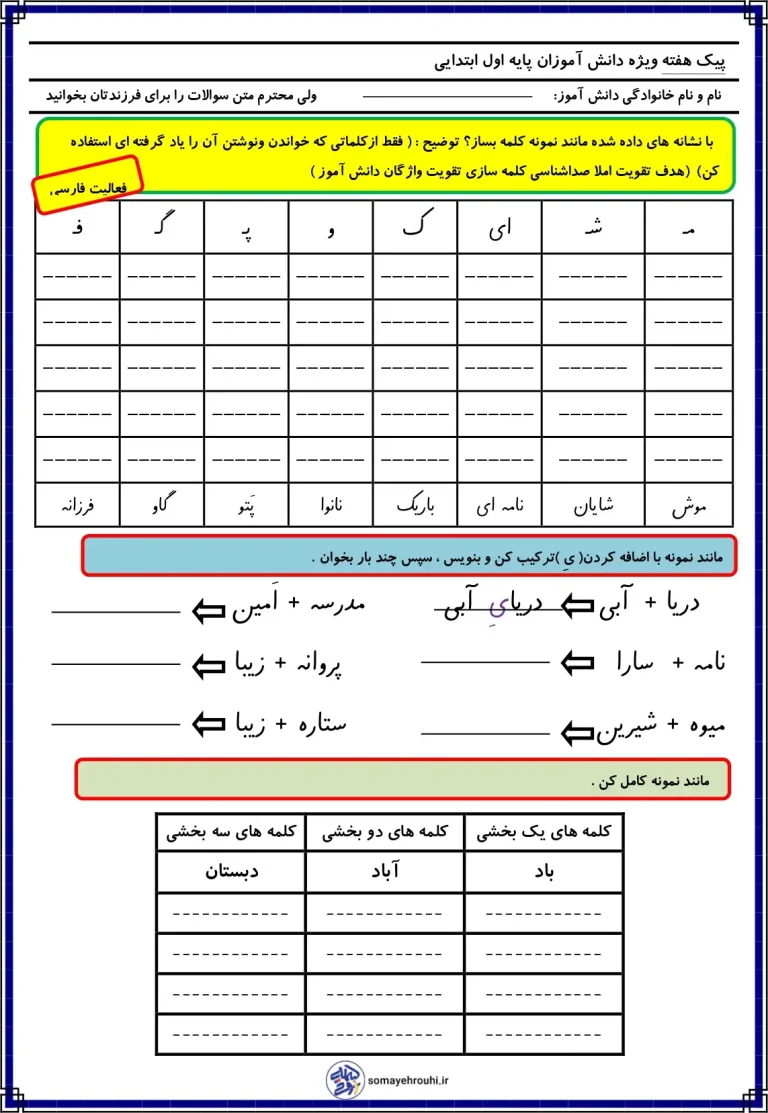 پیک هفته ویژه دانش آموزان پایه اول ابتدایی
نام و نام خانوادگی دانش آموز: ولی محترم متن سوالات را برای فرزندتان بخوانید
با نشانه های داده شده مانند نمونه کلمه بساز؟ توضیح : ( فقط ازکلماتی که خواندن ونوشتن آن را یاد گرفته ای استفاده
کن) (هدف تقویت املا صداشناسی کلمه سازی تقویت واژگان دانش آموز )
فعالیت فارسی
مـ شـ ای ک و پـ گـ فـ
------ ------ ------ ------ ------ ------ ------ ------
------ ------ ------ ------ ------ ------ ------ ------
------ ------ ------ ------ ------ ------ ------ ------
------ ------ ------ ------ ------ ------ ------ ------
------ ------ ------ ------ ------ ------ ------ ------
موش شایان نامه ای باریک نانوا پَتو گاو فرزانه
مانند نمونه با اضافه کردن( یِ )ترکیب کن و بنویس ، سپس چند بار بخوان .
دریا + آبی ⇦ دریایِ آبی مدرسه + اَمین ⇦
نامه + سارا ⇦ پروانه + زیبا ⇦
میوه + شیرین ⇦ ستاره + زیبا ⇦
مانند نمونه کامل کن .
کلمه های یک بخشی کلمه های دو بخشی کلمه های سه بخشی
باد آباد دبستان
------------ ------------ ------------
------------ ------------ ------------
------------ ------------ ------------
------------ ------------ ------------
somayehrouhi.ir